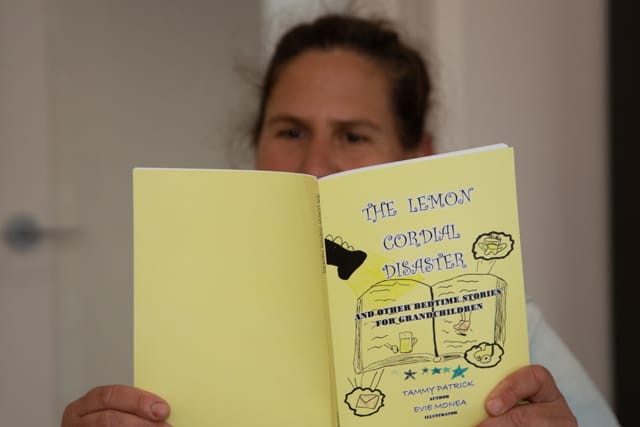 THE LEMON
CORDIAL
DISASTER
AND OTHER BEDTIME STORIES
FOR GRANDCHILDREN
TAMMY PATRICK
AUTHOR
EVIE MONEA
ILLUSTRATOR